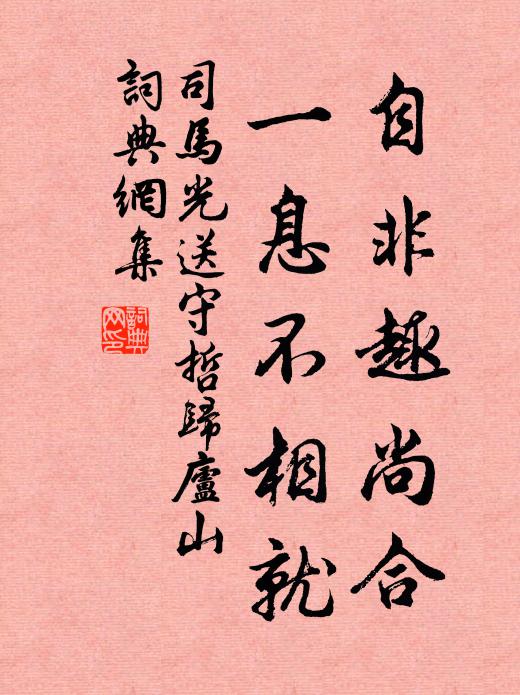 自非趣尚合
一息不相就
司馬光送守哲歸廬山
詞典網集
詞典
网印